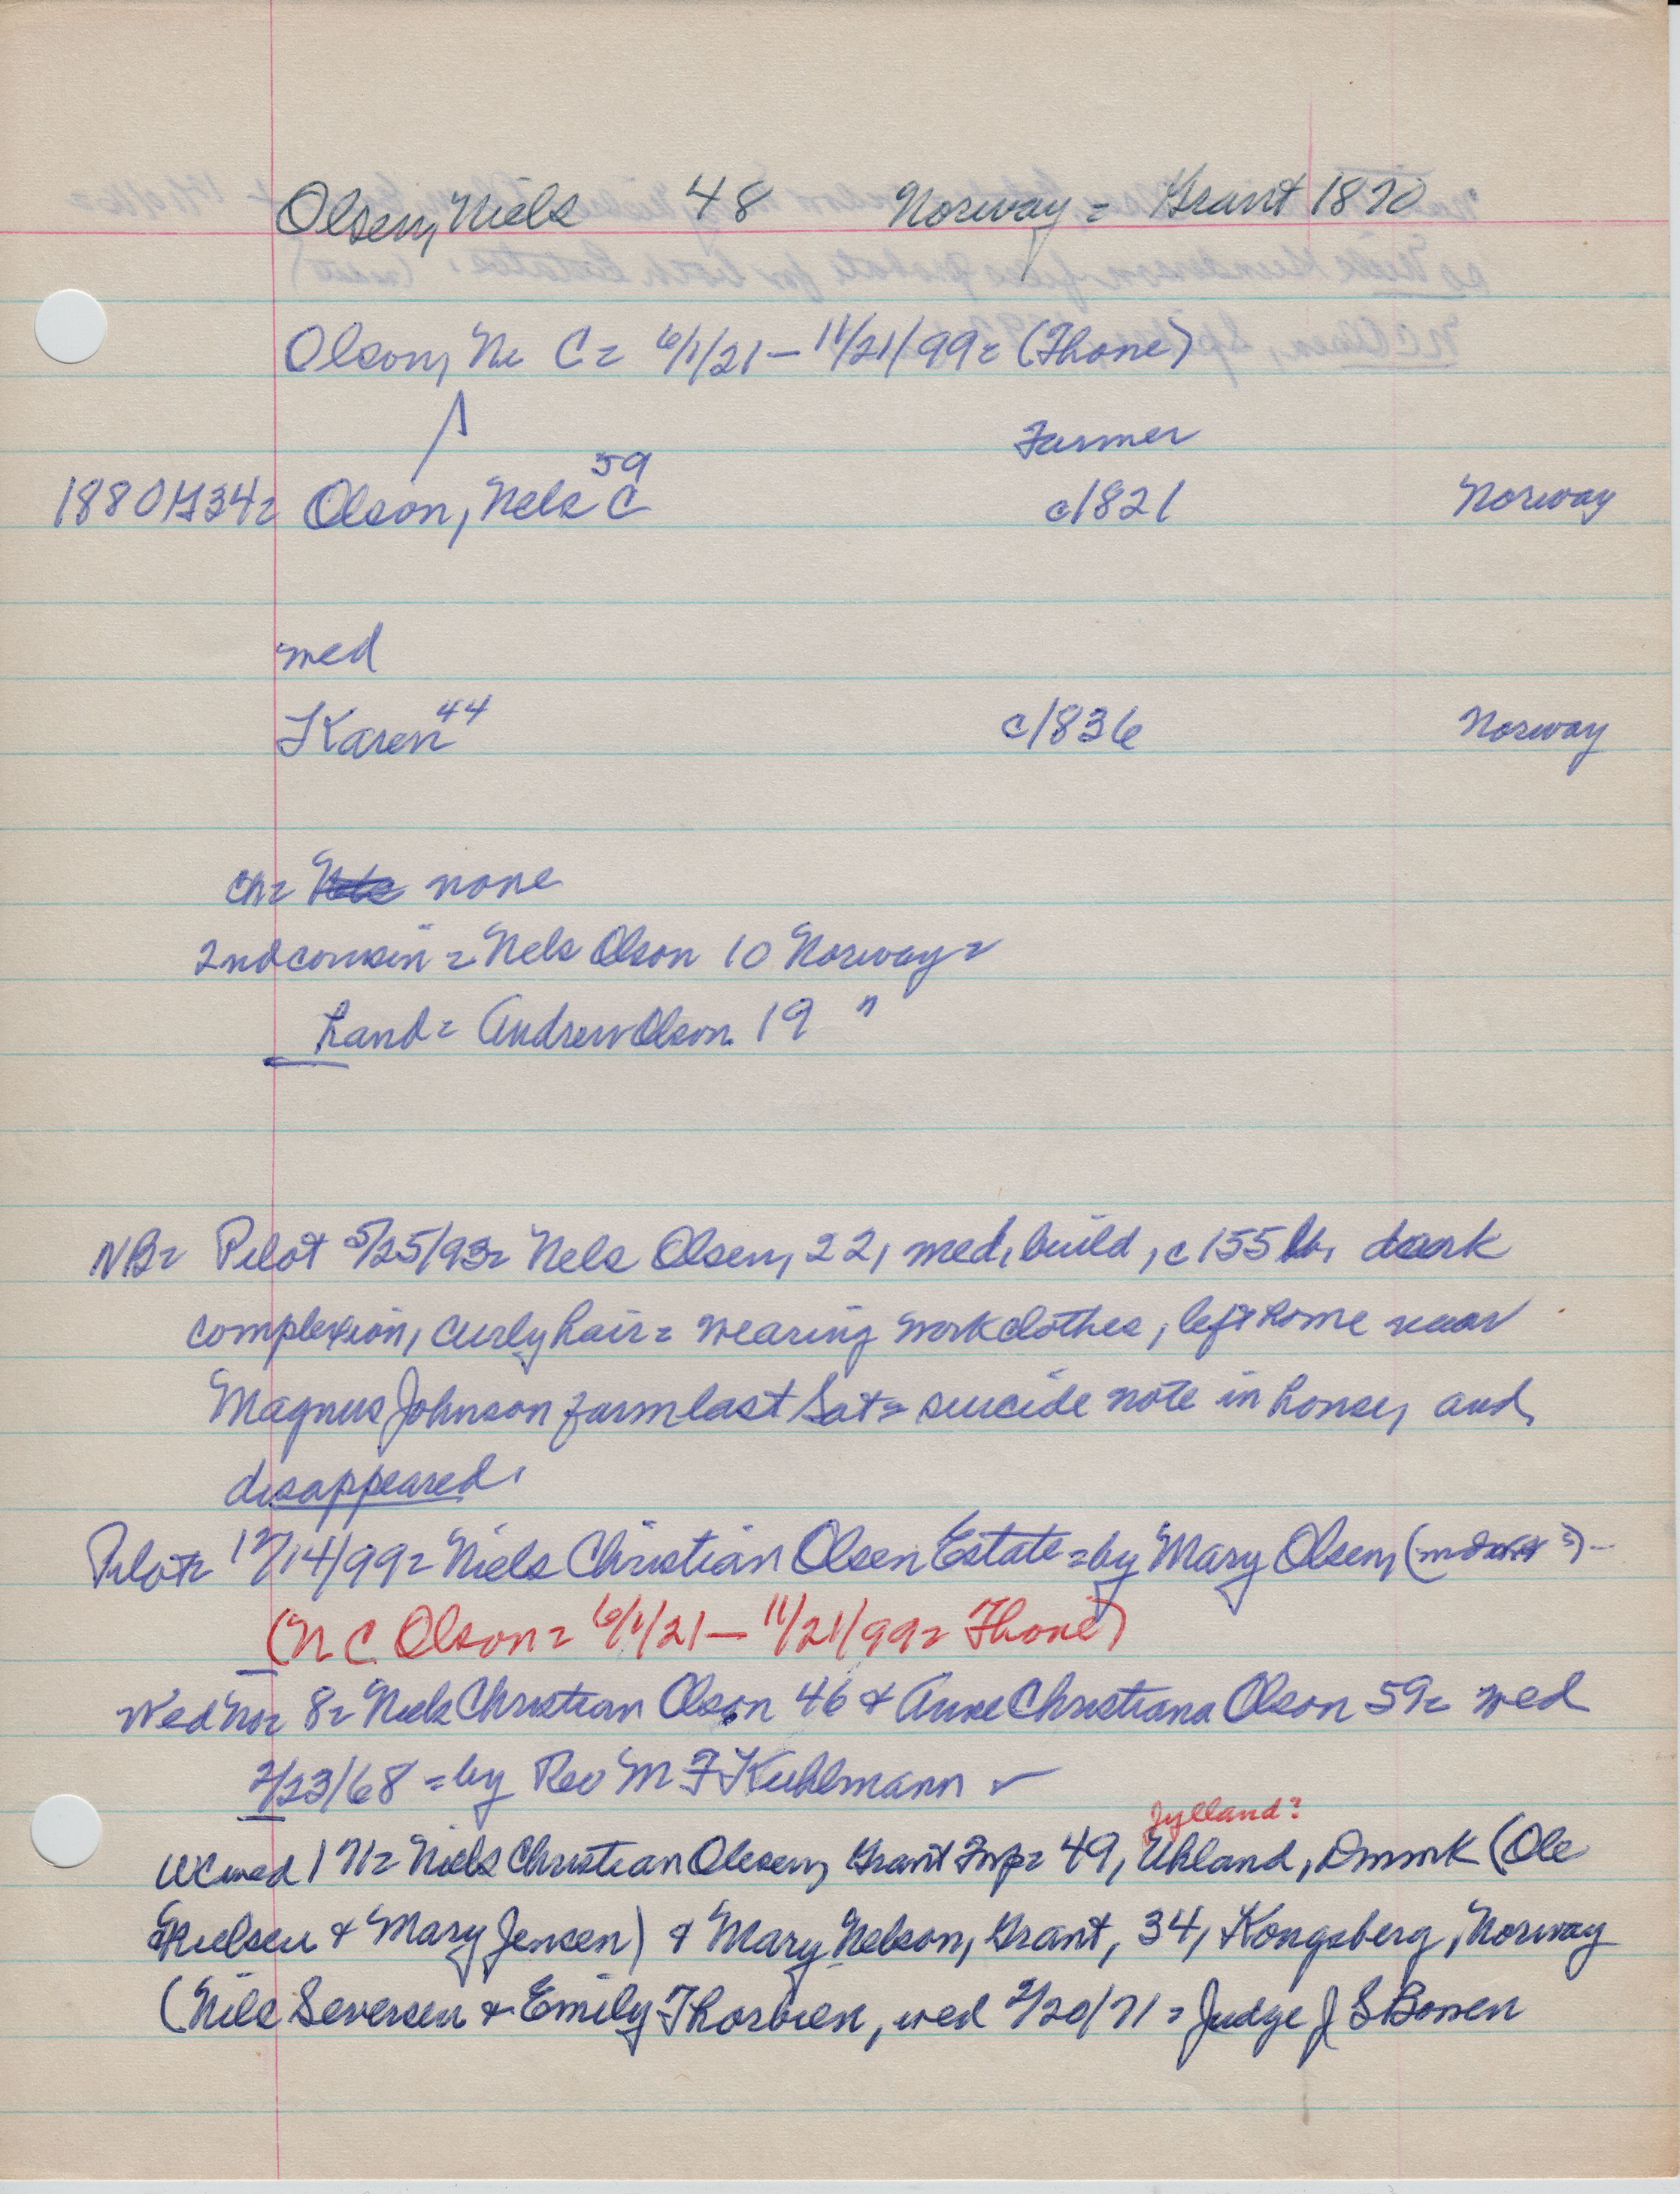 Olsen, Niels 48 Norway = Grant 1870
Olson, N C = 6/1/21 – 11/21/99 = (Thone)
Farmer
1880 G34 = Olson, Nels C 59 c1821 Norway
med
Karen 44 c1836 Norway
ch = none
2nd cousin = Nels Olson 10 Norway =
hand = Andrew Olson 19 "
NB = Pilot 5/25/93 = Nels Olsen, 22, med, build, c 155 lb, dark
complexion, curly hair = wearing work clothes, left home near
Magnus Johnson farm last Sat = suicide note in house, and
disappeared.
Pilot = 12/14/99 = Niels Christian Olsen Estate = by Mary Olsen,
(N C Olson = 6/1/21 – 11/21/99 = Thone)
Wed No = 8 = Niels Christian Olson 46 & Anne Christiana Olson 59 = wed
2/23/68 = by Rev M F Kuhlmann ✓
Jylland?
WC wed 171 = Niels Christian Olesen, Grant Twp = 49, Uhland, Dnmrk (Ole
Nielsen & Mary Jensen) & Mary Nelson, Grant, 34, Kongsberg, Norway
(Nils Seversen & Emily Thorbien, wed 2/20/71 = Judge J S Bowen